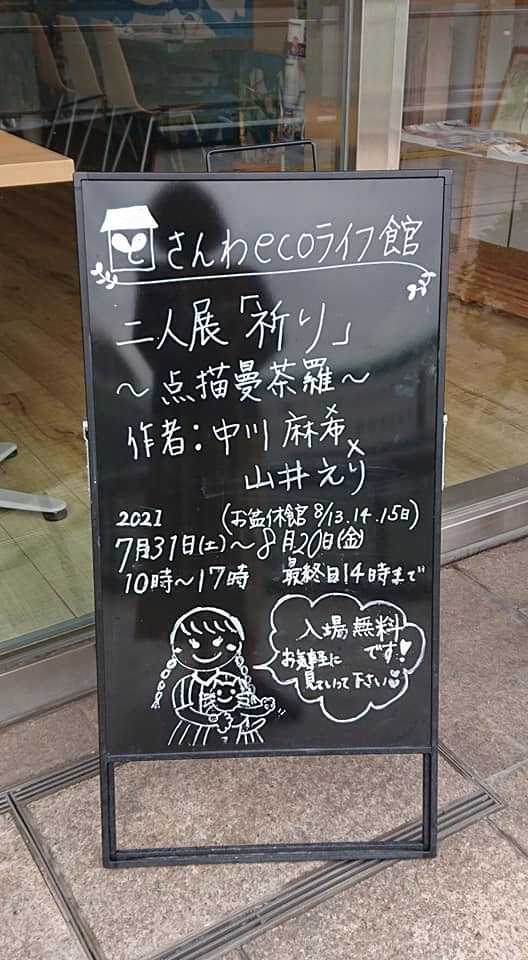 さんわecoライフ館
二人展「祈り」
～点描曼荼羅～
作者:中川 麻希
×
山井えり
2021 (お盆休館 8/13.14.15日)
7月31日(土)～8月20日(金)
10時～17時 最終日14時まで
入場無料
です!
お気軽に
見ていって下さい♡